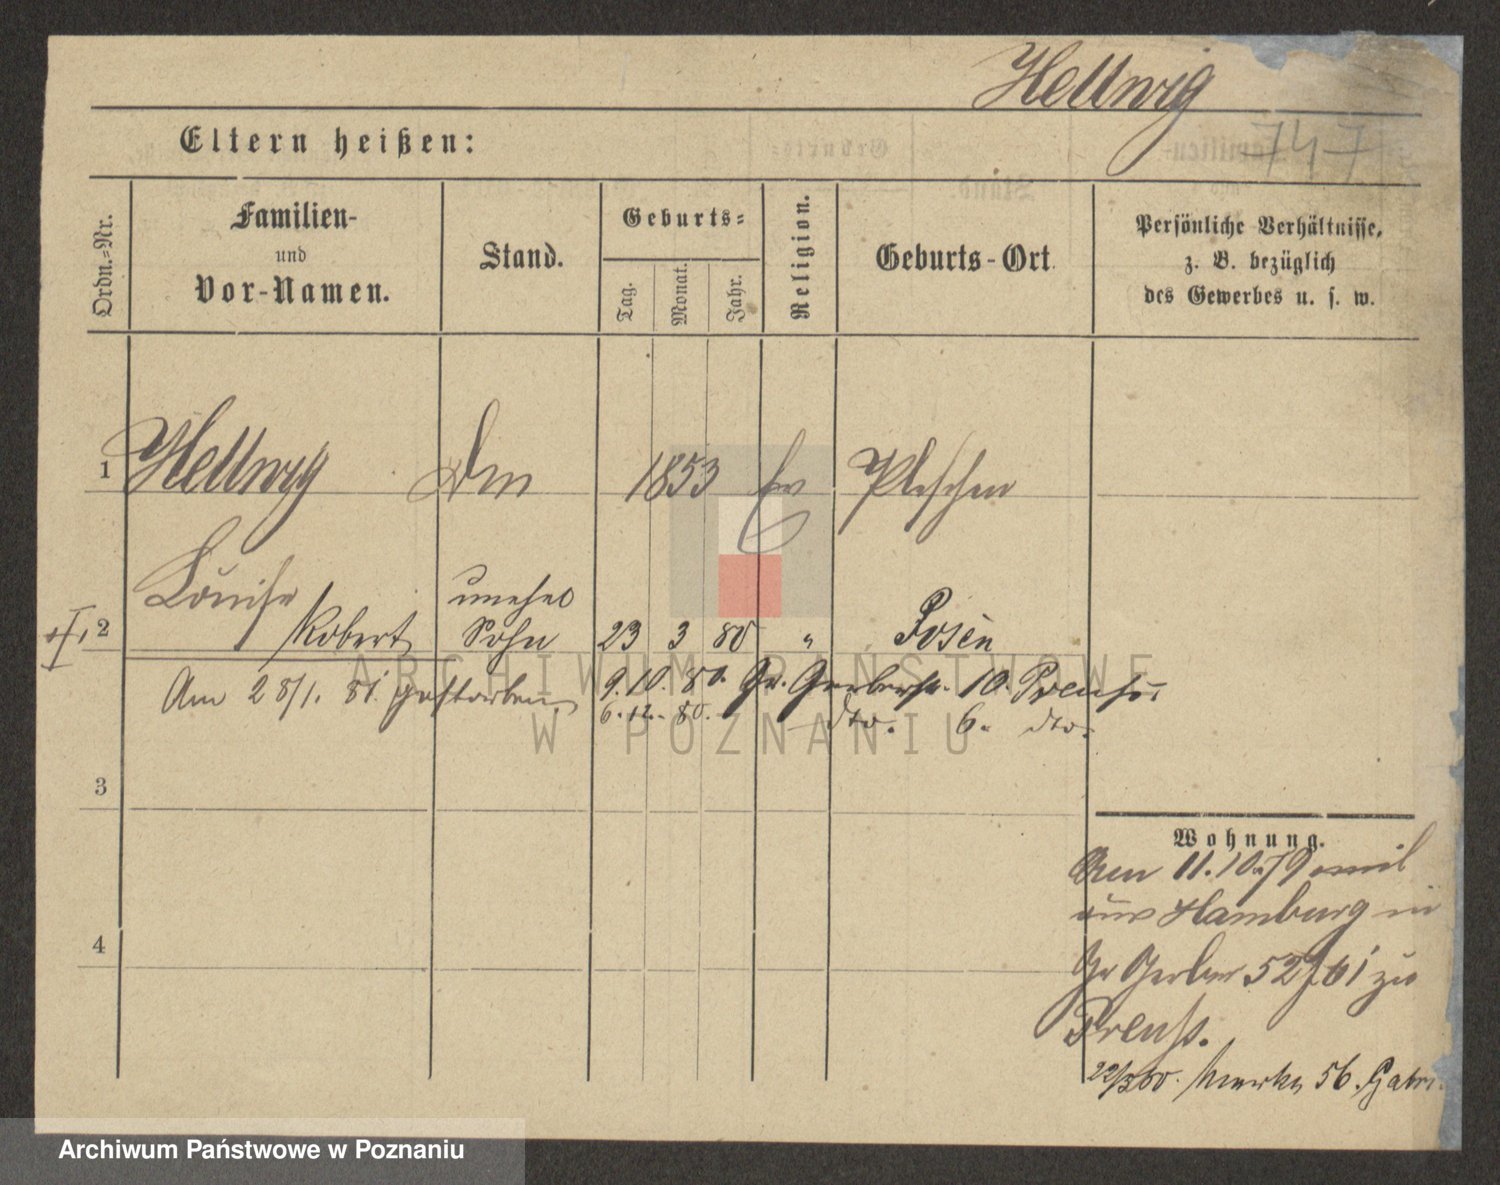 Hellwig
747
Eltern heißen:
Ordn.-Nr.
Familien-
und
Vor-Namen.
Stand.
Geburts-
Tag.
Monat.
Jahr.
Religion.
Geburts-Ort.
Persönliche Verhältnisse,
z. B. bezüglich
des Gewerbes u. s. w.
1 Hellwig 1853 ev Pleschen
Louise
unehel
2 Robert Sohn 23 3 80 " Posen
Am 28/1. 81. gestorben. 9. 10. 80. Gr. Gerberstr. 10. Preuss.
6. 12. 80. dto. 6. dto.
3
Wohnung.
Am 11.10.79
aus Hamburg in
4
Gr Gerber 52 zu
Preuss.
56.
ARCHIWUM PAŃSTWOWE
W POZNANIU
Archiwum Państwowe w Poznaniu